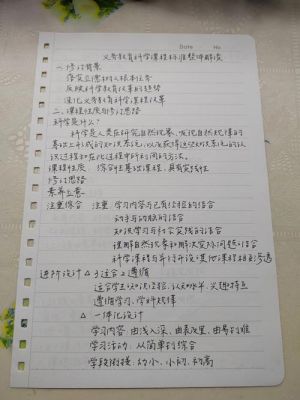 Date No
义务教育科学课程标准整体解读
一、修订背景
落实立德树人根本任务
反映科学教育改革的趋势
深化义务教育科学课程改革
二、课程性质与修订思路
科学是什么?
科学是人类在研究自然现象、发现自然规律的
基础上形成的知识系统,以及获得这些知识系统的认
识过程和在此过程中所利用的方法。
课程性质:综合性基础课程,具有实践性
修订思路
素养立意
注重综合 注重 学习内容与已有经验的结合
动手与动脑的结合
知识学习与社会实践的结合
理解自然现象和解决实际问题的结合
科学课程与并行开设其他课程相互渗透
进阶设计 △ 3适合2遵循
适合学生认知经验、认知水平、兴趣特点
遵循学习、学科规律
△ 一体化设计
学习内容:由浅入深、由表及里、由易到难
学习活动:从简单到综合
学段衔接:幼小、小初、初高